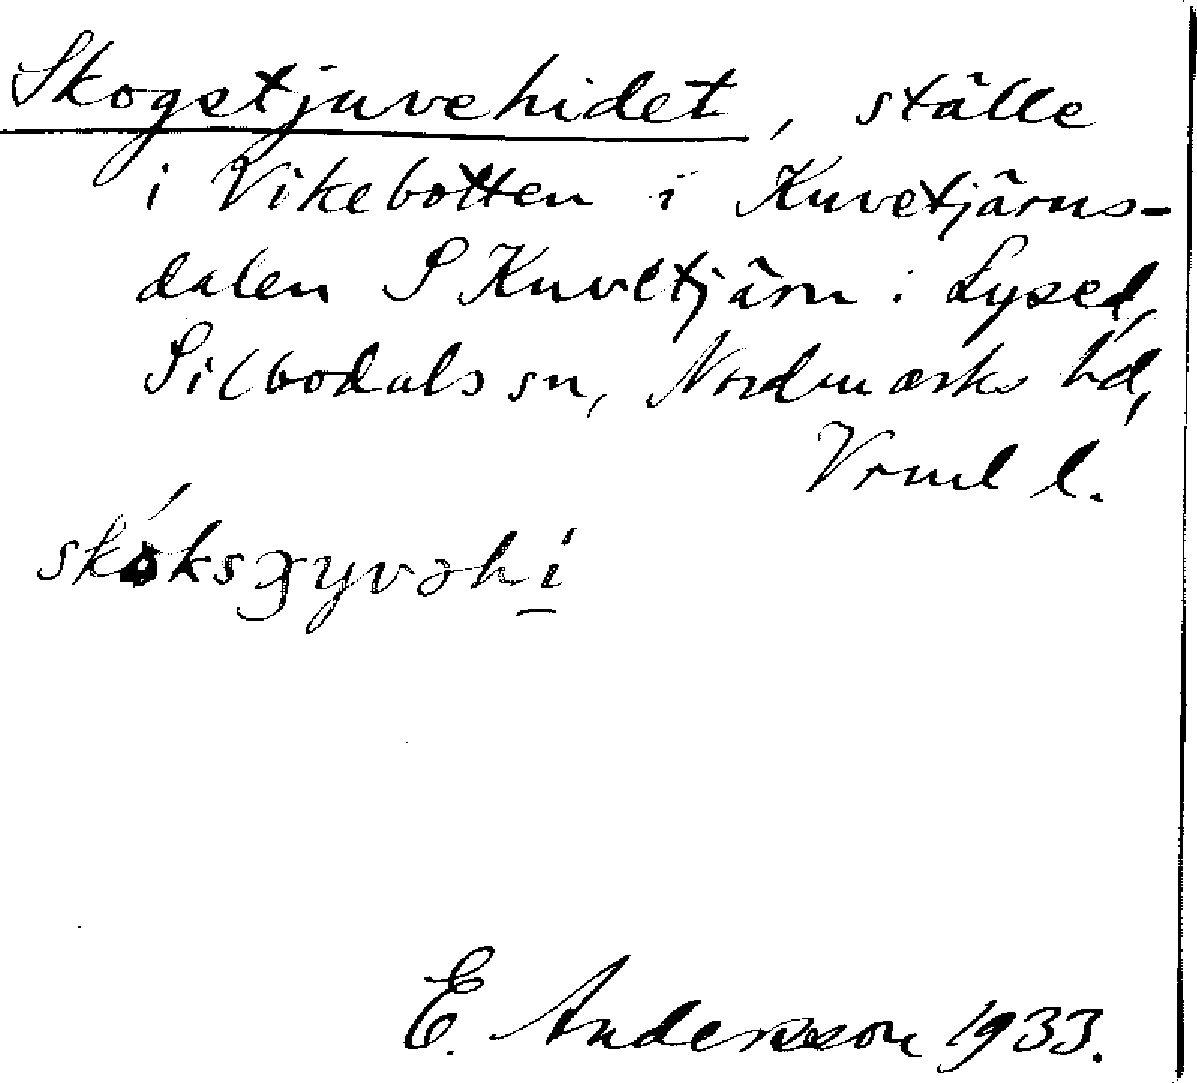 Skogstjuvehidet, ställe
i Vikebotten i Kuvetjärns-
dalen S Kuvetjärn i Lysed,
Silbodals sn, Nordmarks hd,
Vrml l.
E. Andersson 1933.